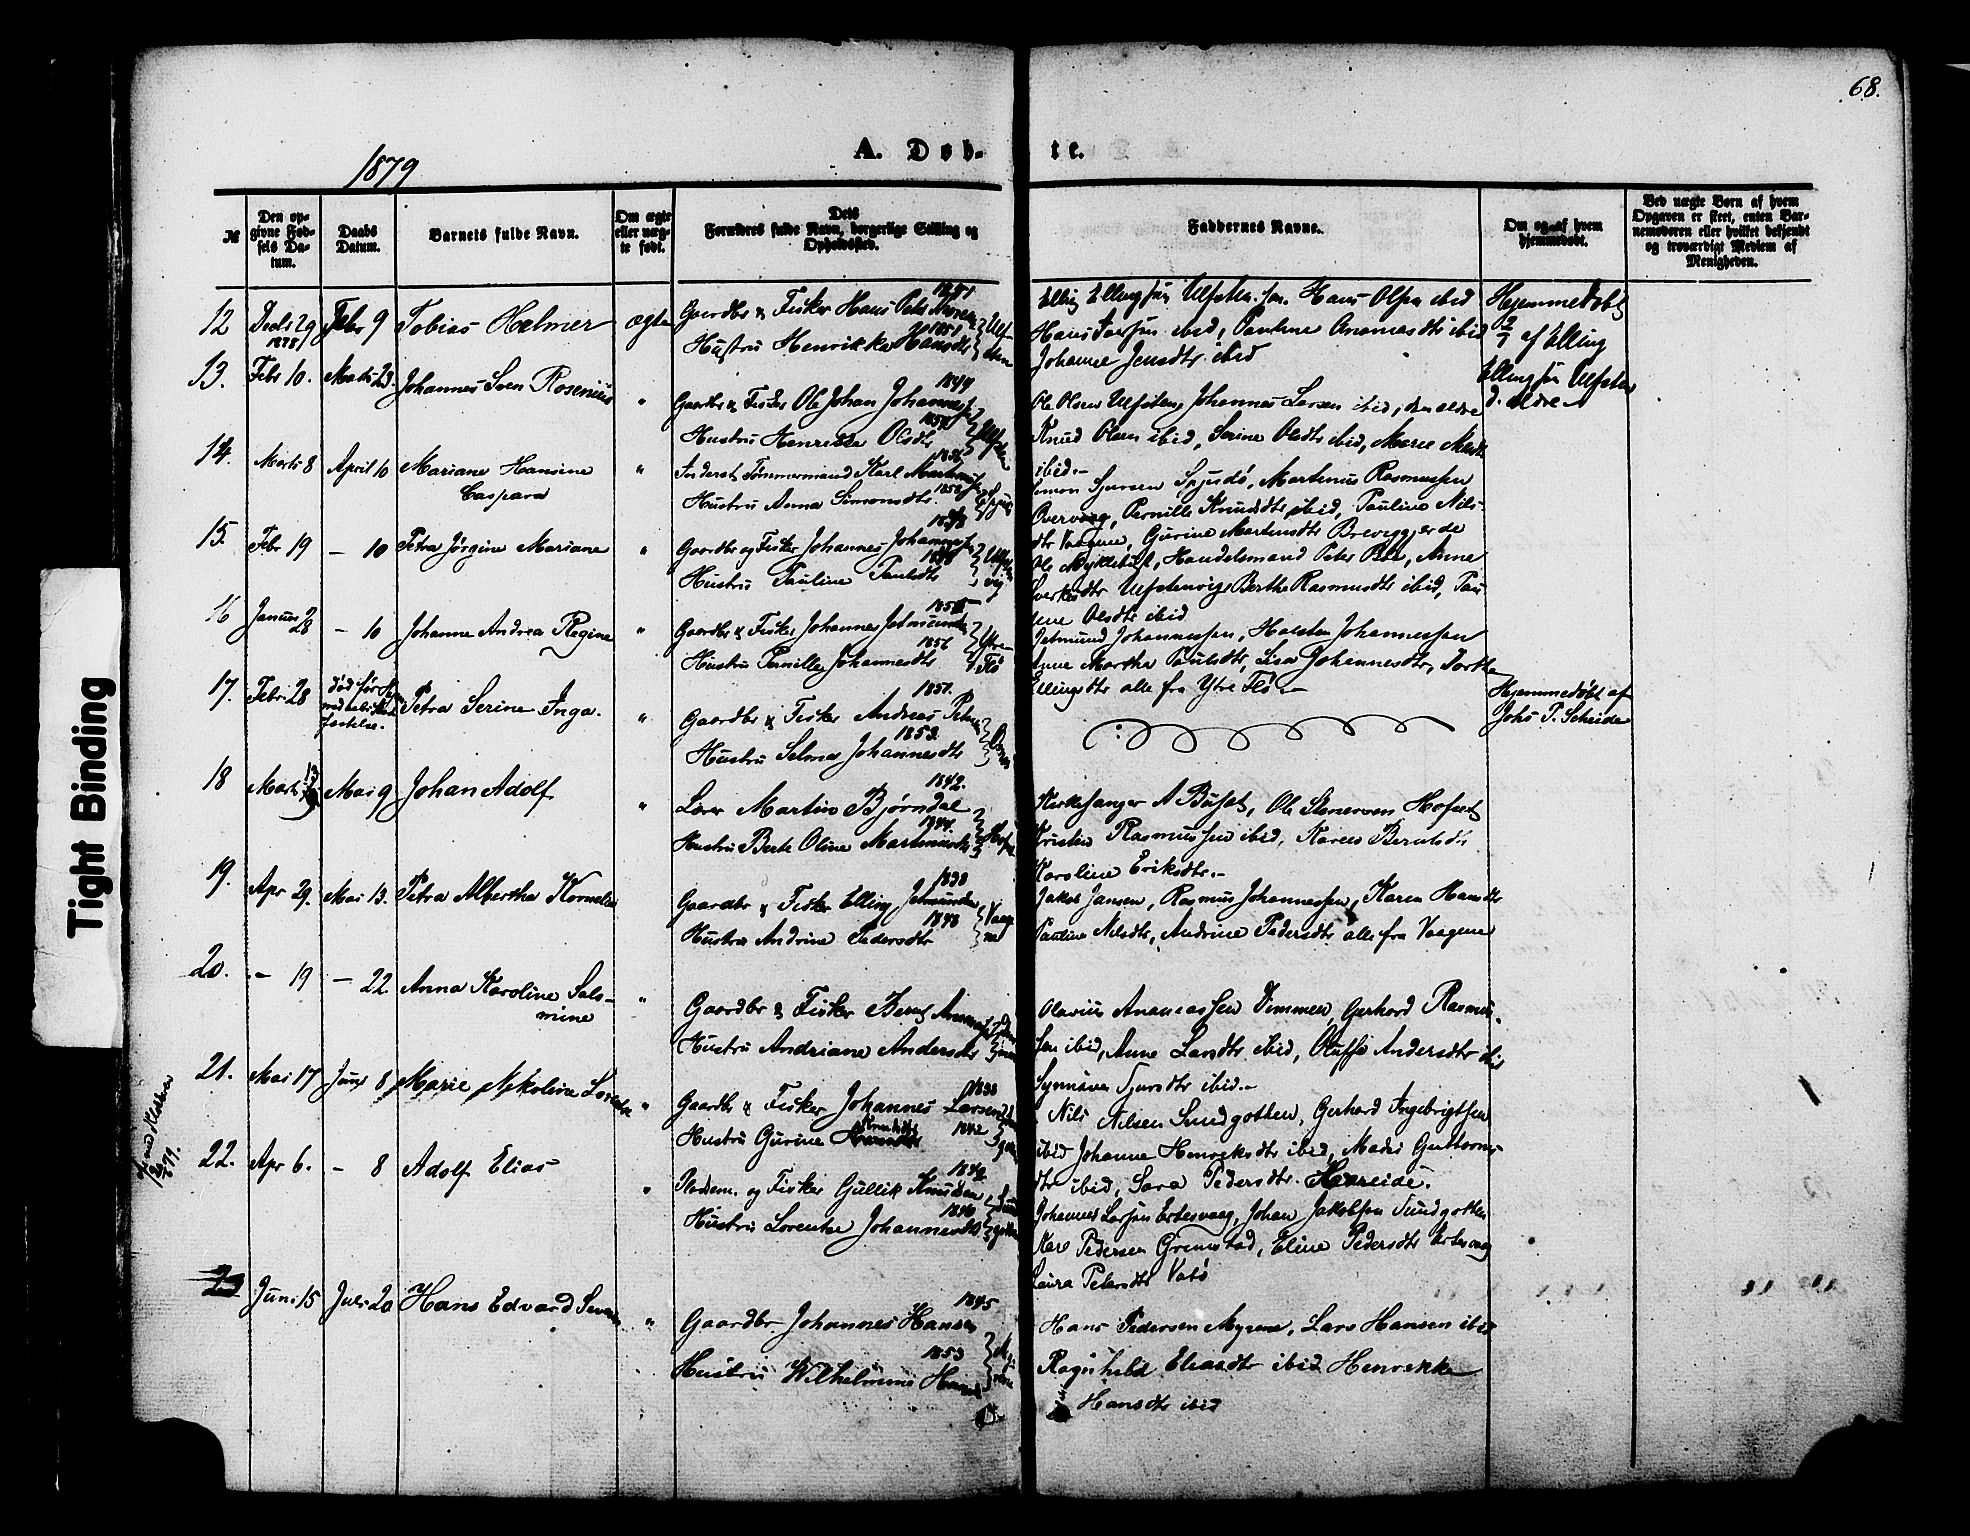 68.
A. Døb-
te.
1879
№
Den op-
givne Fød-
sels Da-
tum.
Daabs
Datum.
Barnets fulde Navn.
Om ægte
eller uæg-
te født.
Dets
Forældres fulde Navn, borgerlige Stilling og
Opholdssted.
Faddernes Navne.
Om og af hvem
hjemmedøbt.
Ved uægte Børn af hvem
Opgaven er skeet, enten Bar-
nemoderen eller hvilket bekjendt
og troværdigt Medlem af
Menigheden.
12 Decbr 29 Febr 9 Tobias Helmer ægte Gaardbr & Fisker Hans Peter
1878
Hustru Henrikke Hansdtr 1851
Hans Olsen ibid
ibid, Pauline Ananiasdtr ibid
Johanne Jensdtr ibid
Hjemmedøbt
af Elling
Ellingsen Ulfsten
d. ældre
13. Febr 10. Marts 23. Johannes Sven Rosenius " Gaardbr & Fisker Ole Johan Johannes 1849
Hustru Henrikke Olsdtr
Ole Olsen Ulfsten, Johannes Larsen ibid, den ældre
Knud Olsen ibid, Serine Olsdtr ibid, Marie
ibid.-
14. Marts 8 April 10 Mariane Hansine " Inderst Tømmermand Karl
Caspara
Hustru Anna Simonsdtr. 1852
Simon Sjursen Spjudø, Martinus Rasmussen
Overvaag, Pernille Knudsdtr ibid, Pauline Nils-
dtr Vaagene, Gurine Martinsdtr Brevegg, er de
15. Febr 19 — 10 Petra Jørgine Mariane " Gaardbr og Fisker Johannes Johannes
Hustru Pauline Paulsdtr
Ole Myklebust, Handelsmand Peter Bøe, Anne
Sverkesdtr Ulfstenvig, Berthe Rasmusdtr ibid, Pau
line Olsdtr ibid
16 Januar 28 — 10 Johanne Andrea Regine " Gaardbr & Fisker Johannes Jetmunds
1856
Hustru Pernille Johannesdtr Ytre Flø
Jetmund Johannessen, Halsten Johannessen
Anne Martha Paulsdtr, Lisa Johannesdtr, Dorthe
Ellingsdtr alle fra Ytre Flø.-
17. Febr 28 død før Petra Serine Inga. " Gaardbr & Fisker Andreas Peter 1851.
Hustru Selma Johannesdtr 1852
Hjemmedøbt af
Johs P. Scheide
18 Marts Mai 9 Johan Adolf " Lærer Martin Bjørndal 1842.
Hustru Berte Oline Martinusdtr 1844.
Kirkesanger A Busat, Ole Stenersen Hofset
Kristen Rasmussen ibid, Karen Berntsdtr
Karoline Eriksdtr.-
19. Apr 29. Mai 13. Petra Albertha Kornelia " Gaardbr & Fisker Elling Jetmunds 1838
Hustru Andrine Pedersdtr 1843 Vaagene
Jakob Jansen, Rasmus Johannessen, Karen Hansdtr
Pauline Nilsdtr, Andrine Pedersdtr alle fra Vaagene
20. — 19 — 22. Anna Karoline Sals- " Gaardbr & Fisker Bernt
mine
Hustru Andriane Andersdtr
Olavius Ananiassen Dimmen, Gerhard Rasmus-
sen ibid, Anne Larsdtr ibid, Oluffa Andersdtr ibid
Synnøve Sjursdtr ibid.-
21. Mai 17 Juni 8 Marie Nikoline Lovise " Gaardbr & Fisker Johannes Larsen 1833
Hustru Gurine Knudsdtr 1842
Nils Nilsen Sundgothen, Gerhard Ingebrigtsen
ibid Johanne Henriksdtr ibid, Madsi Guttorms-
dtr ibid, Sara Pedersdtr. Hareide.
22. Apr 6. — 8 Adolf Elias " Pladsem. og Fisker Gullik Knudsen 1849
Hustru Lorentse Johannesdtr 1846
Johannes Larsen Ertesvaag, Johan Jakobsen Sundgothen
Karl Pedersen Grimstad, Eline Pedersdtr Ertesvaag
Laura Petersdtr Vatø
23 Juni 15 Juli 20 Hans Edvard " Gaardbr Johannes Hansen 1845
Hustru Wilhelmine Hansdtr 1853
Hans Pedersen Myrene, Lars Hansen ibid
Ragnhild Eliasdtr ibid Henrikke
Hansdtr ibid
Tight Binding